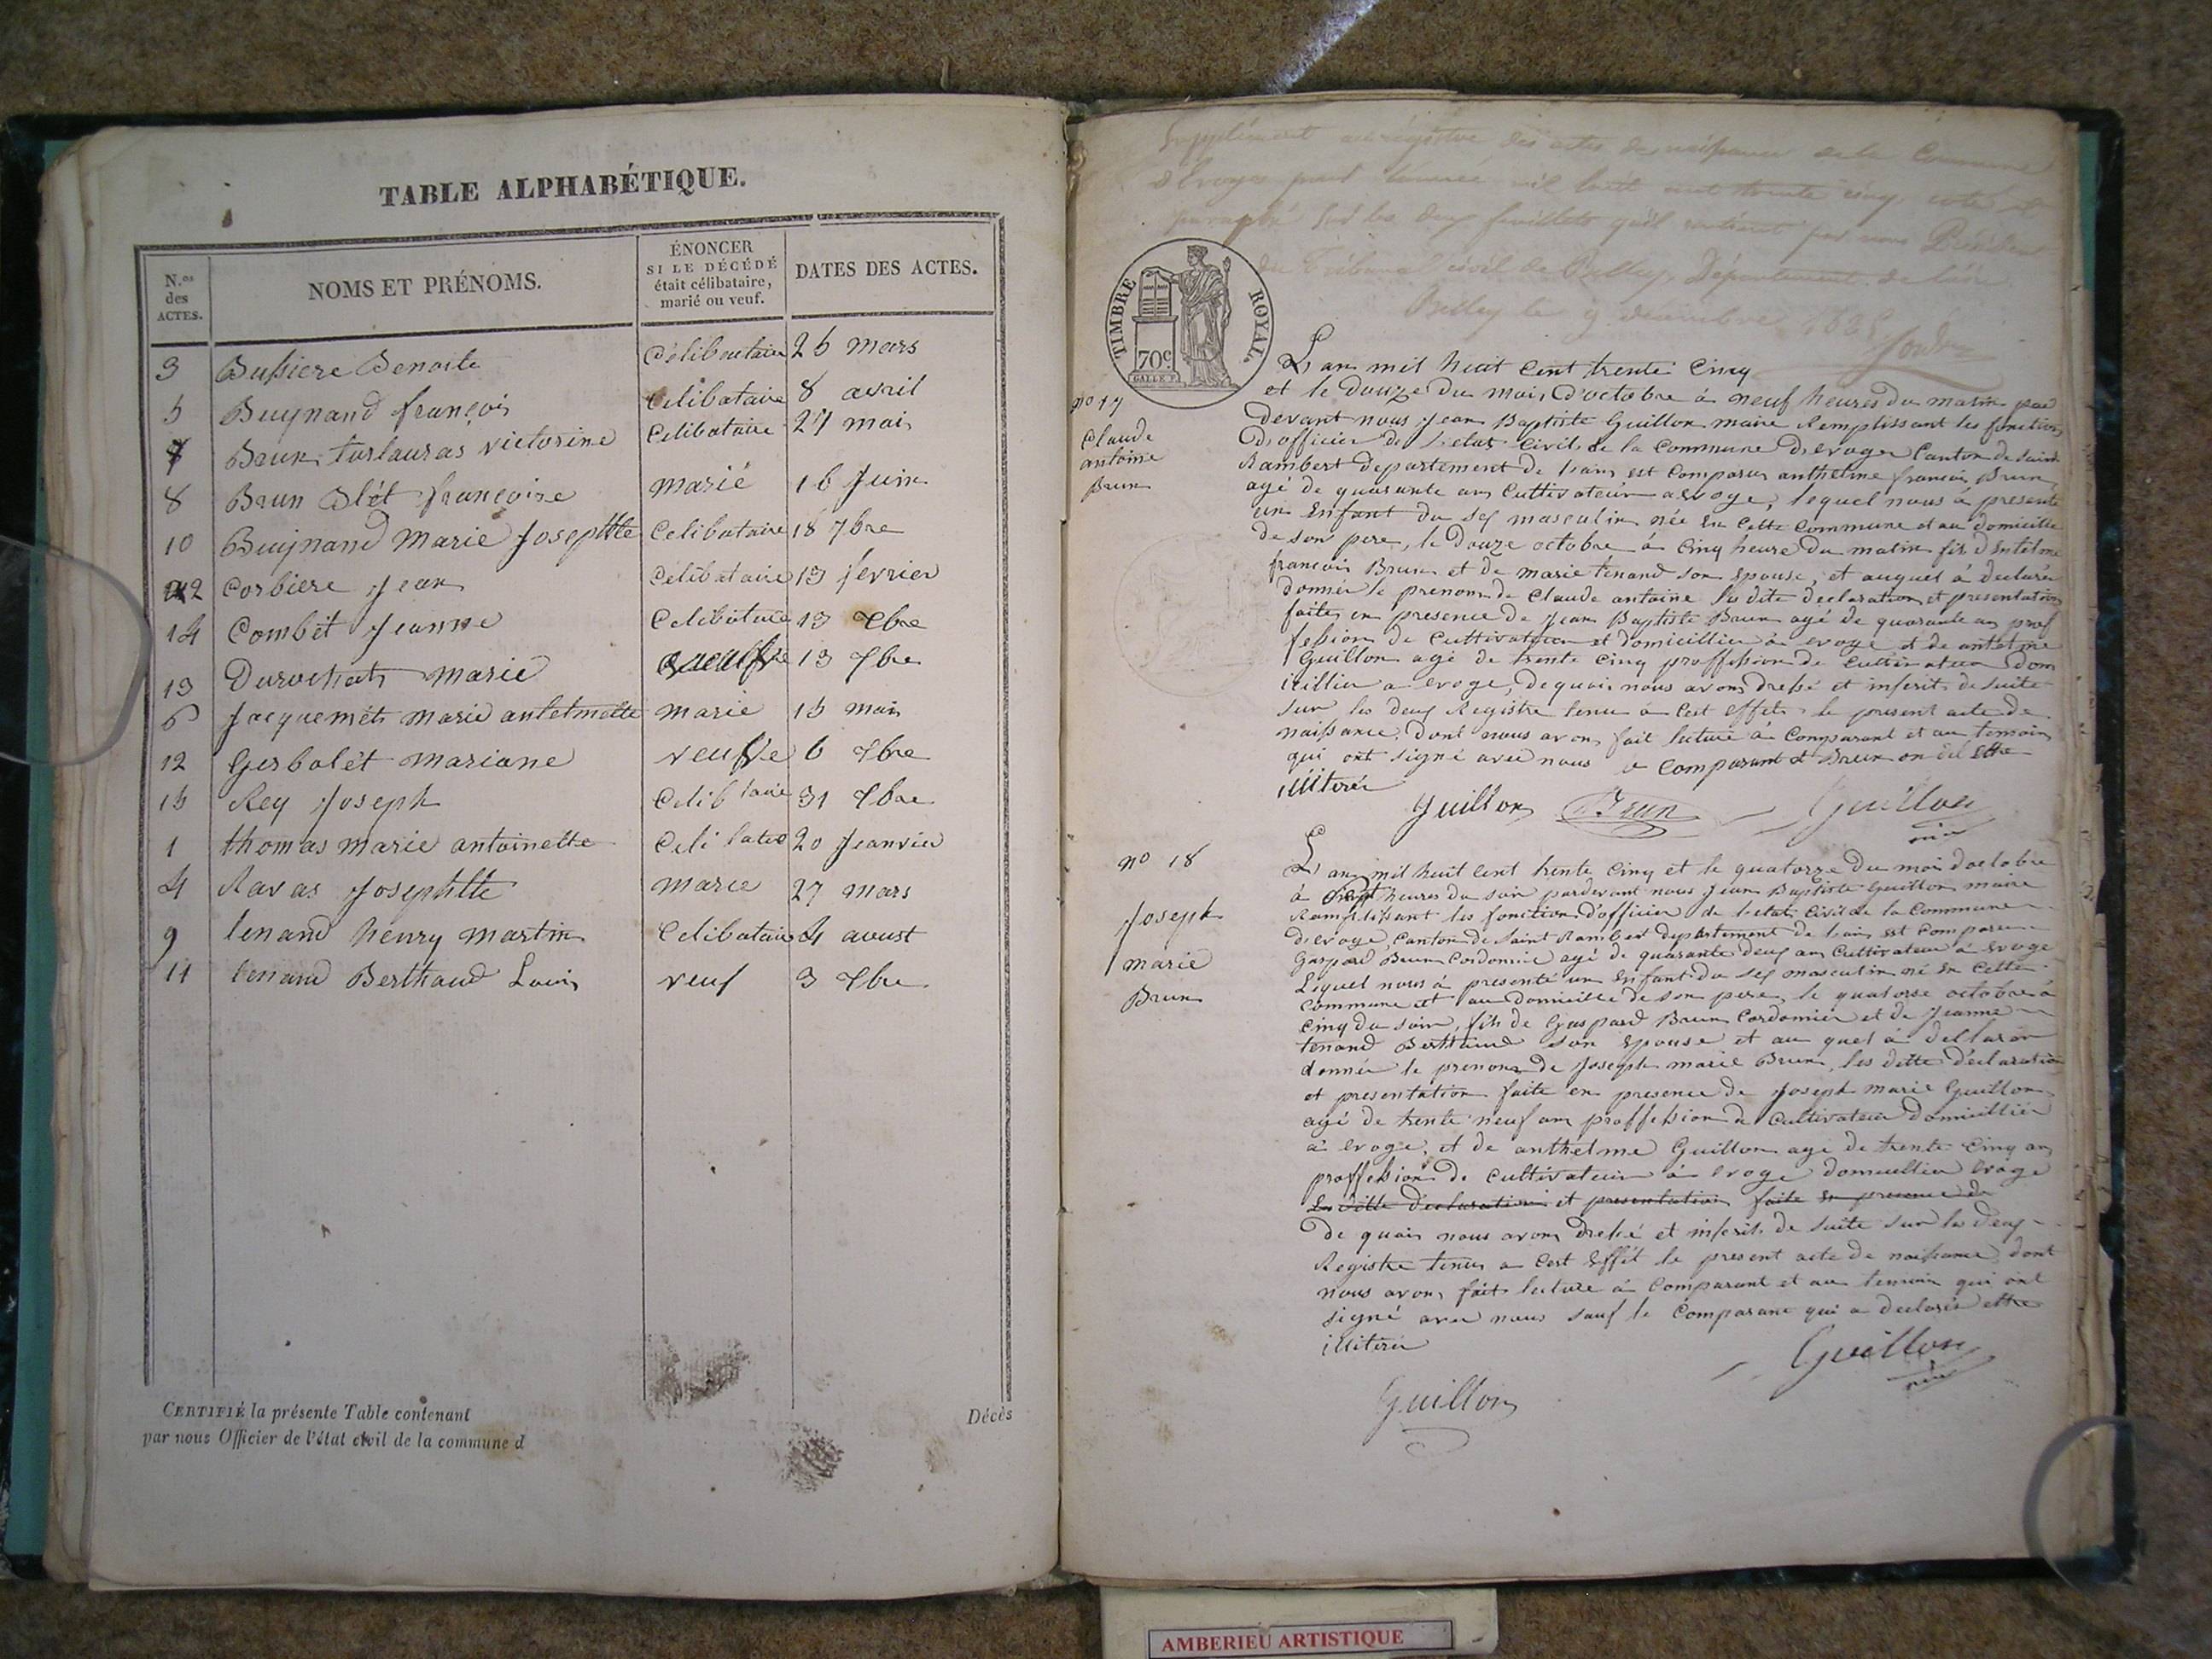 TABLE ALPHABÉTIQUE.
N.os des ACTES.
NOMS ET PRÉNOMS.
ÉNONCER
SI LE DÉCÉDÉ
était célibataire,
marié ou veuf.
DATES DES ACTES.
3 Bussiere Benoite Célibataire 26 mars
5 Buynand françois Celibataire 8 avril
7 Brun turlauras victorine Celibataire 27 mai
8 Brun Blét françoise marié 16 Juin
10 Buynand Marie Josephtte Celibataire 18 7bre
2 Corbiere Jean Célibataire 13 fevrier
14 Combét Jeanne Celibataire 13
13 Durochat marie 13
6 Jacquemét marie antelmette marie 15 mai
12 Gerbolét mariane veufve 6
15 Rey Joseph 31
1 thomas marie antoinette 20 Jeanvier
4 Ravas Josephtte mariee 27 mars
9 tenand henry martin Celibataire 4 avust
11 tenand Berthaud Louis veuf 3
CERTIFIÉ la présente Table contenant
Décès
par nous Officier de l'état civil de la commune d
Supplément au régistre des actes de naissance de la Commune
pour l'année mil huit cent trente cinq, coté et
paraphé sur les deux feuillets qu'il contient par nous Président
du tribunal civil de Belley, Département de l'ain
Belley le 9 décembre
TIMBRE ROYAL.
70c.
L'an mil huit cent trente cinq
et le douze du mois d'octobre à neuf heures du matin par
no 17
Claude
antoine
Brun
devant nous Jean Baptiste Guillon maire Remplissant les fonction
d'officier de l'etat Civil de la Commune d'evoges Canton de Saint
Rambert departement de l'ain est Comparu anthelme françois Brun
agé de quarante ans Cultivateur a Evoge, lequel nous à presenté
un Enfant du sex masculin née En Cette Commune et au domicille
de son pere, le douze octobre à Cinq heure du matin fis d'Entelme
françois Brun et de marie tenand son Epouse, et auquel à declarér
donnér le prenom de Claude antoine les dite declaration et presentation
faites en presence de Jean Baptiste Brun agé de quarante an prof
fession de Cultivateur et domicillier à evoge et de antelme
Guillon agé de trente Cinq proffession de Cultivateur dom
icillier a evoge, de quois nous avons dressé et inscrit de suite
sur les deux Registre tenu à Cest effet le present acte de
naissance, dont nous avons fait lecture à Comparant et au temoin
qui ont signé avec nous Comparant et Brun on dit Ettre
illiterér
Guillon Brun Guillon
no 18
Joseph
marie
Brun
L'an mil huit cent trente Cinq et le quatorze du moi d'octobre
à heures du soir pardevant nous Jean Baptiste Guillon maire
Remplissant les fonction d'officier de l'etat Civil de la Commune
d'evoge, Canton de Saint Rambert departement de l'ain, est Comparu
Gaspard Brun Cordonnier agé de quarante deux ans Cultivateur à Evoge
Lequel nous à presenté un Enfant du sex masculin né En Cette
Commune et au domicille de son pere, le quatorse octobre à
Cinq du soir, fils de Gaspard Brun Cordonnier et de Jeanne
tenand Berthaud son Epouse et au quel à declarér
donnér le prenom de Joseph marie Brun, les dette declaration
et presentation faite en presence de Joseph marie Guillon
agé de trente neuf ans proffession de Cultivateur domicillier
à evoge, et de anthelme Guillon agé de trente Cinq an
proffession de Cultivateur à evoge domicillier Evoge
Les dette declaration et presentation faite En presence de
de quois nous avons dressé et inscrit de suite sur les deux
Registre tenu a Cest Effét le present acte de naissance dont
nous avons fait lecture à Comparant et au temoin qui ont
signé avec nous sauf le Comparant qui a declarér ettre
illiterér
Guillon
Guillon
AMBERIEU ARTISTIQUE